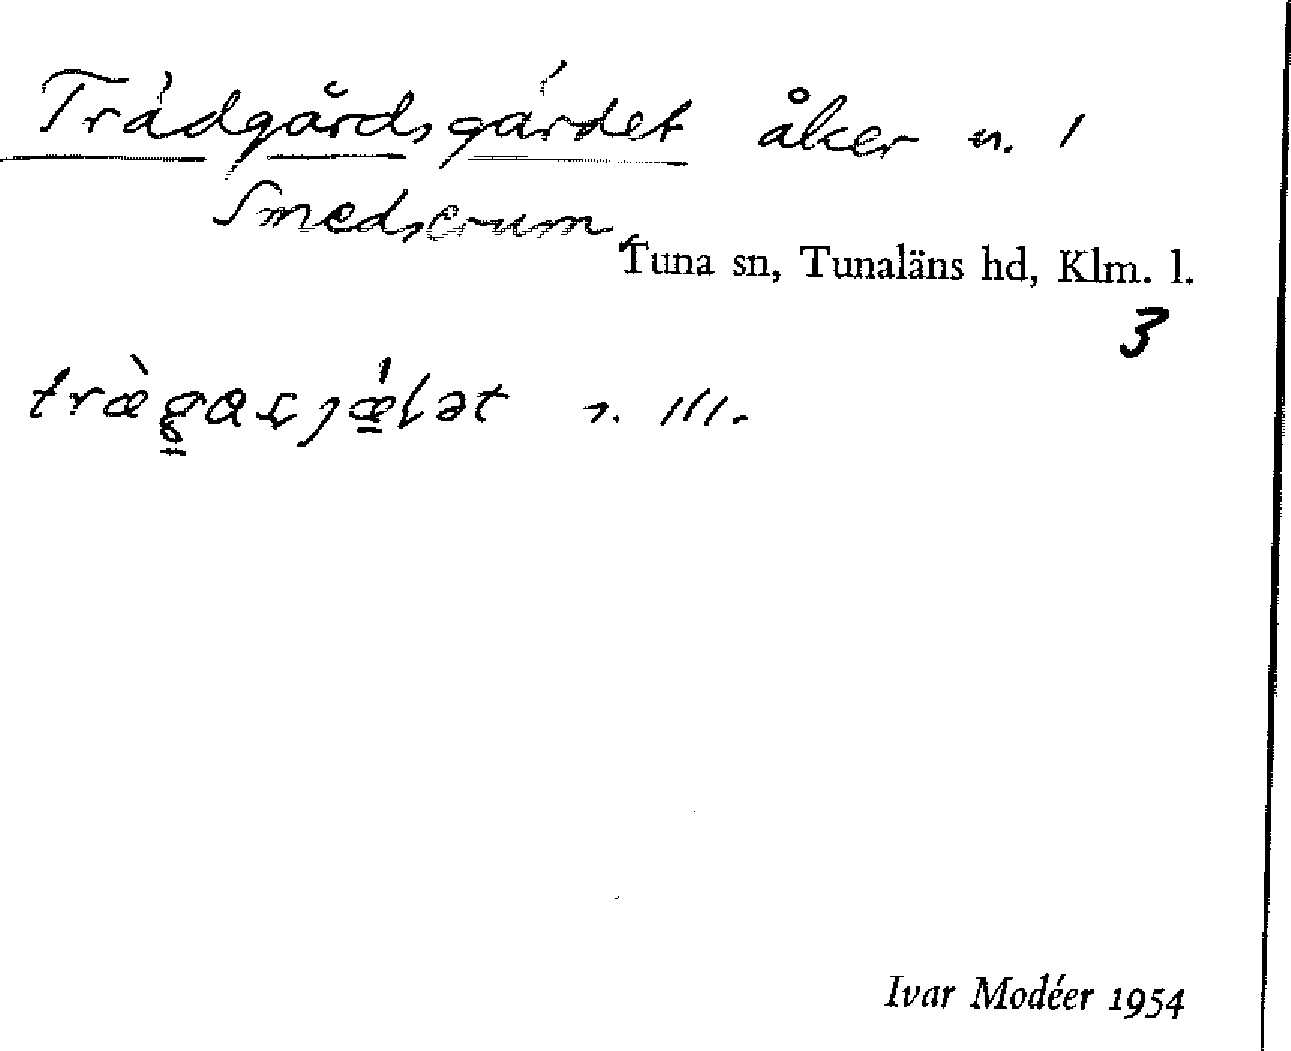 Trädgårdsgärdet åker n. 1
Smedserum
Tuna sn, Tunaläns hd, Klm. l.
3
III.
Ivar Modéer 1954